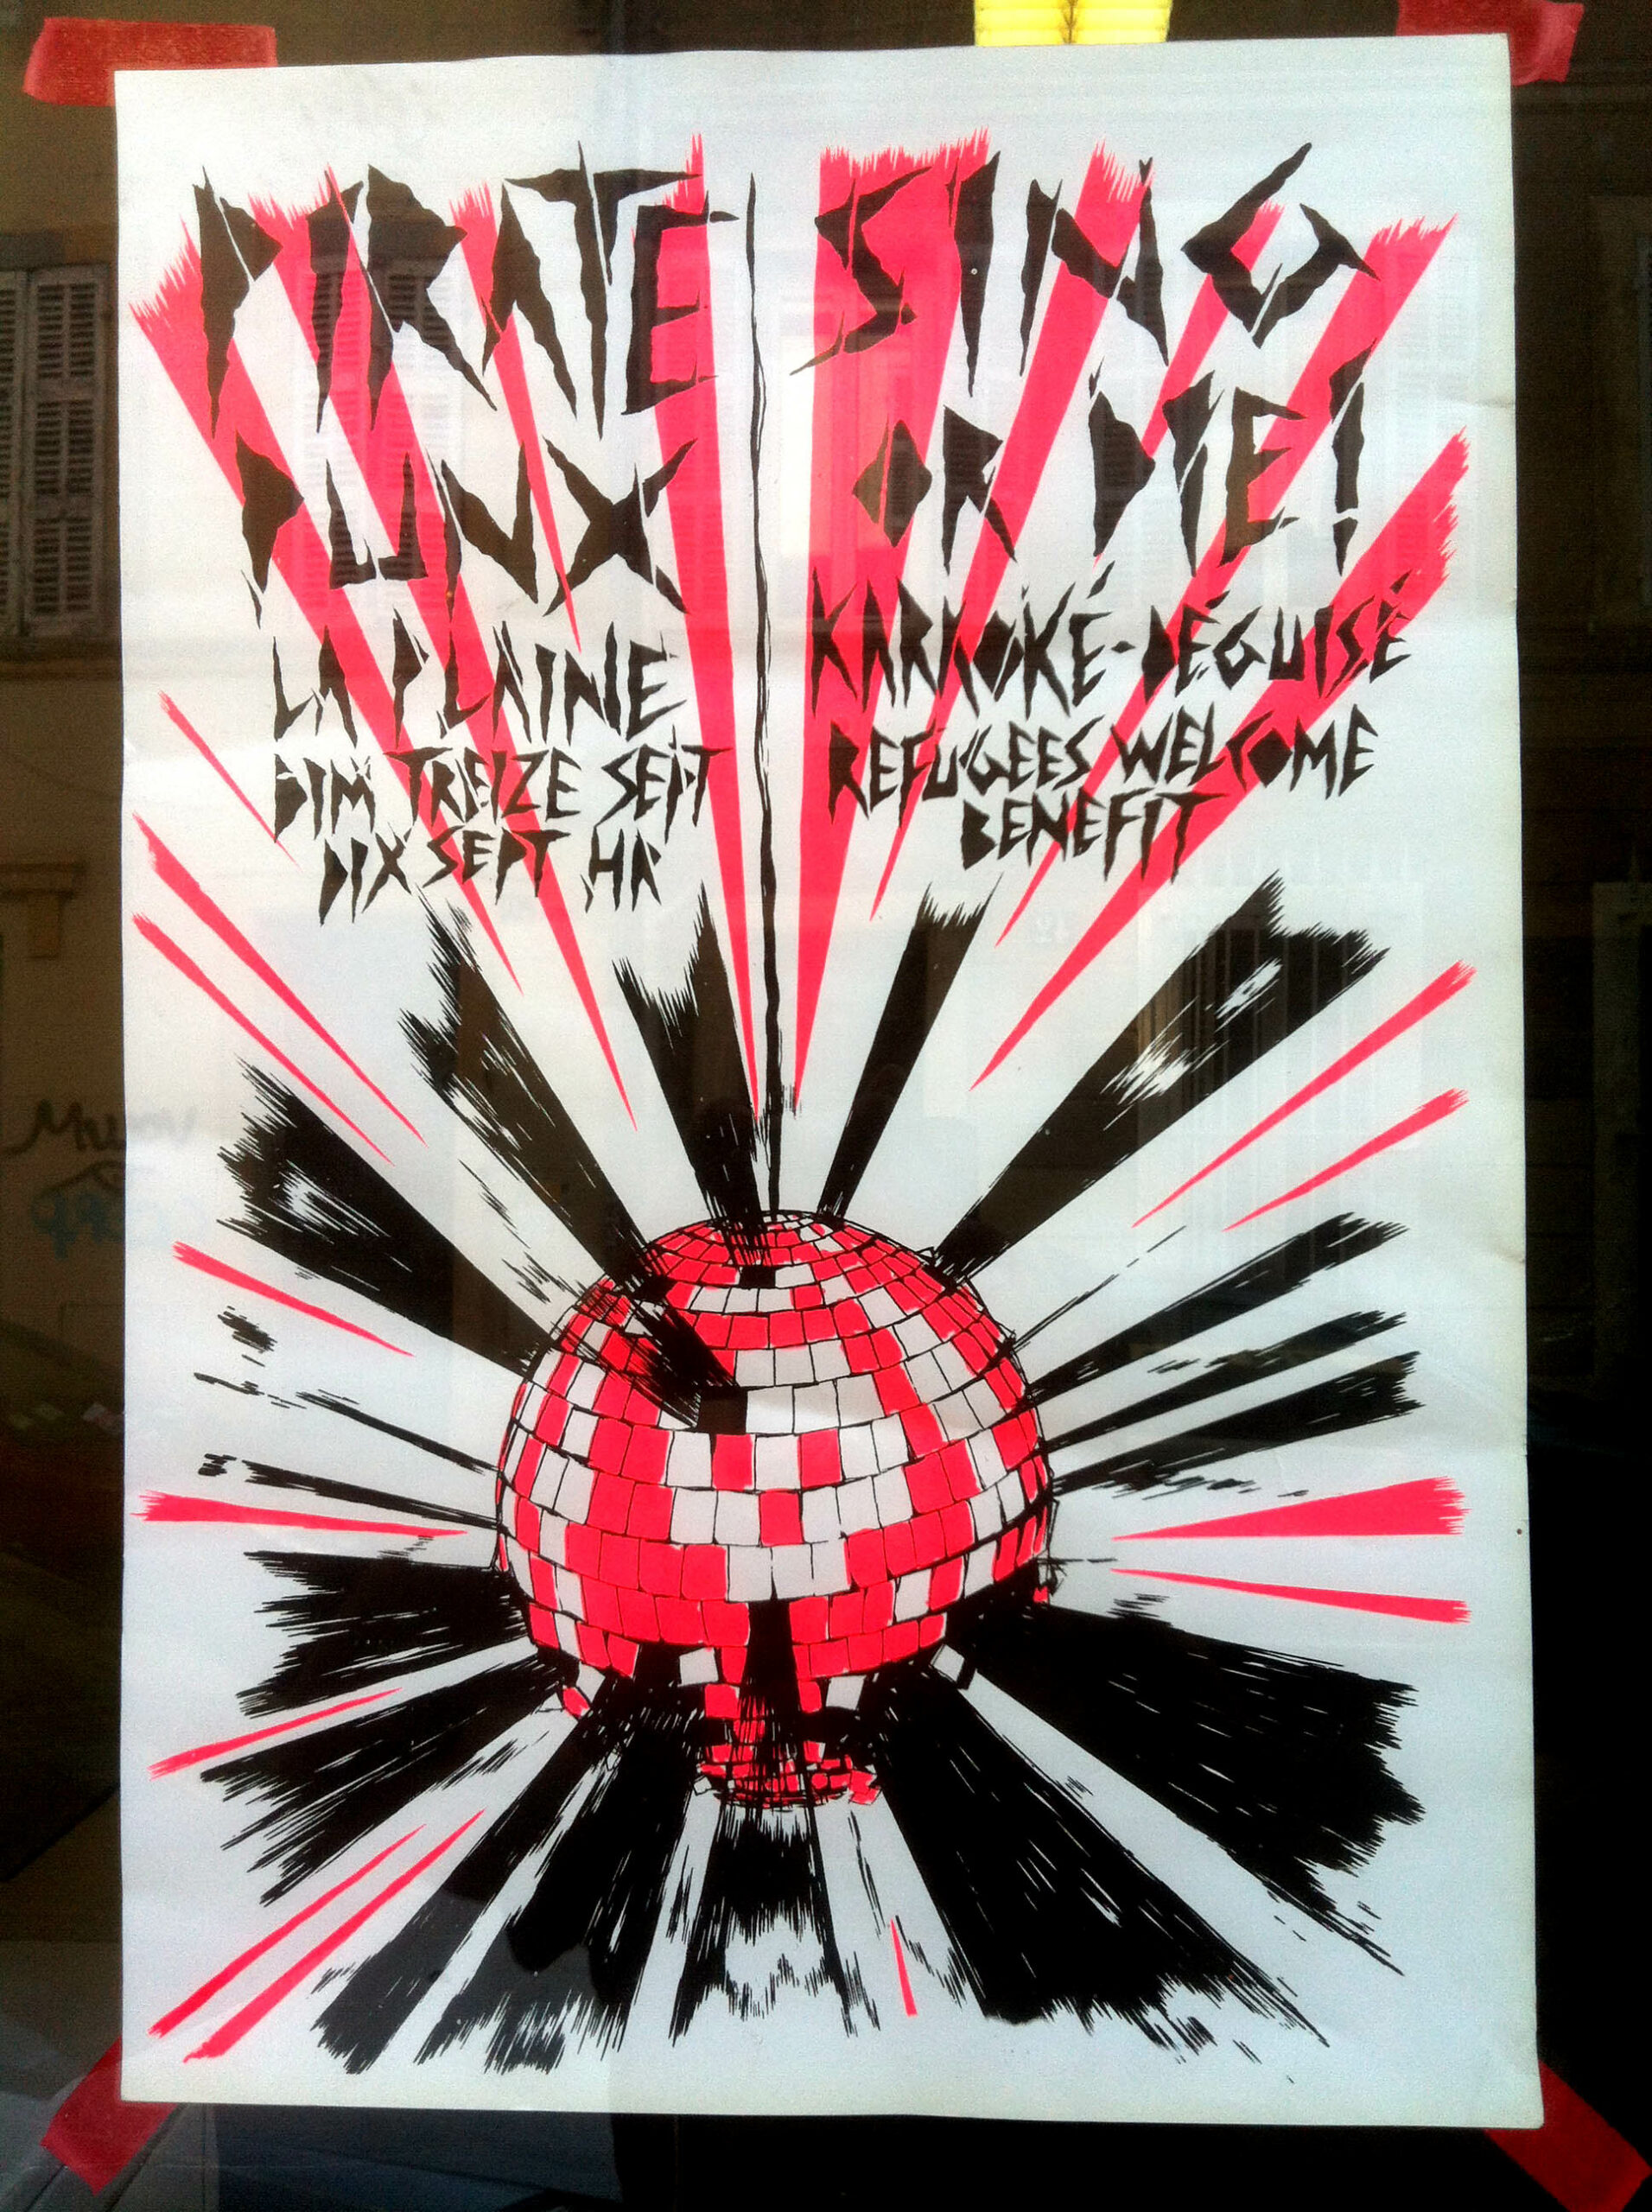 PIRATE
PUNX
LA PLAINE
DIM TREIZE SEPT
DIX SEPT HR
SING
OR DIE!
KARAOKÉ-DÉGUISÉ
REFUGEES WELCOME
BENEFIT